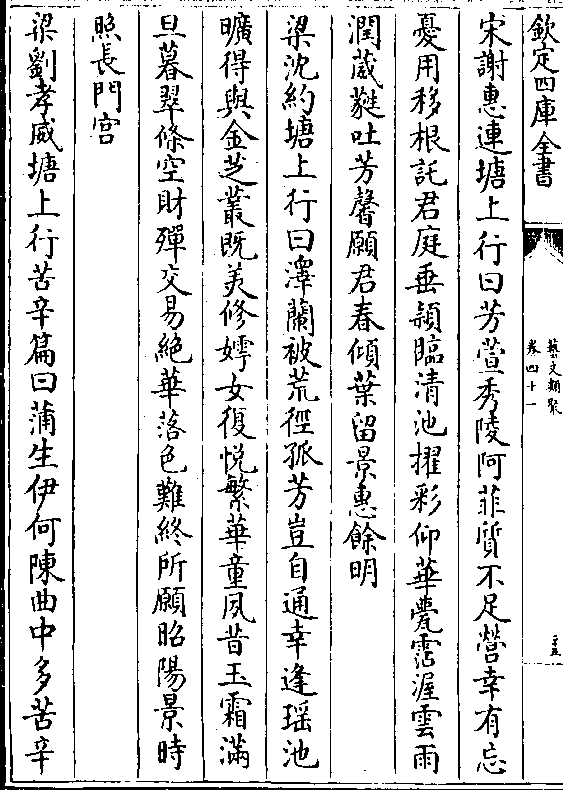 欽定四庫全書
藝文類聚
卷四十一
宋謝惠連塘上行曰芳萱秀陵阿菲質不足營幸有忘
憂用移根託君庭垂穎臨清池擢彩仰華甍霑渥雲雨
潤葳蕤吐芳馨願君春傾葉留景惠餘明
梁沈約塘上行曰澤蘭被荒徑孤芳豈自通幸逢瑶池
曠得與金芝叢既美修嫮女復悦繁華童夙昔玉霜滿
旦暮翠條空財殫交易絶華落色難終所願昭陽景時
照長門宮
梁劉孝威塘上行苦辛篇曰蒲生伊何陳曲中多苦辛